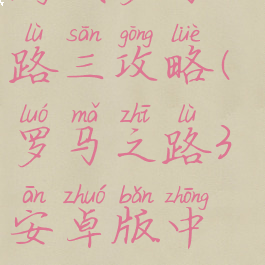 lù sān gōng lüè
路三攻略(
luó mǎ zhī lù
罗马之路3
ān zhuó bǎn zhōng
安卓版中